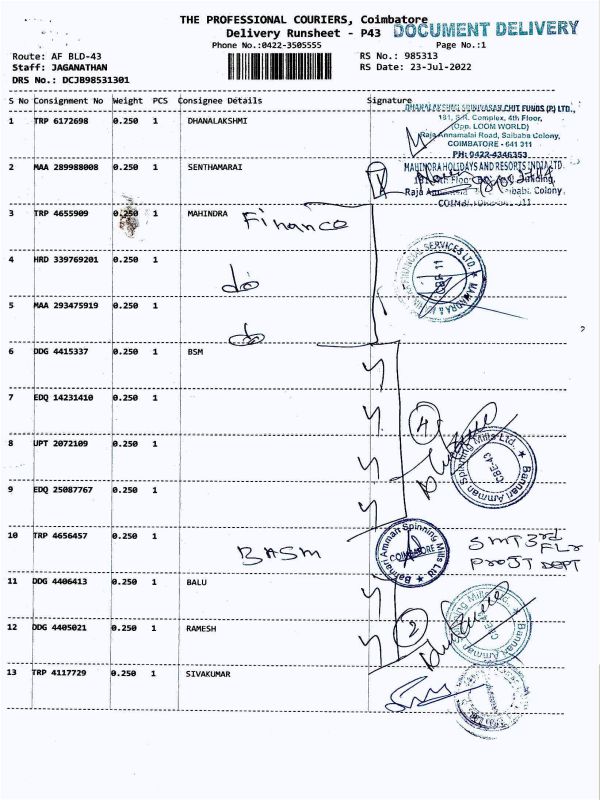 THE PROFESSIONAL COURIERS, Coimbatore
Delivery Runsheet - P43
DOCUMENT DELIVERY
Phone No.:0422-3505555
Page No.:1
Route: AF BLD-43
RS No.: 985313
Staff: JAGANATHAN
RS Date: 23-Jul-2022
DRS No.: DCJB98531301
S No Consignment No Weight PCS Consignee Details Signature
DHANALAKSHMI SRINIVASAN CHIT FUNDS (P) LTD.,
1 TRP 6172698 0.250 1 DHANALAKSHMI
181, S.R. Complex, 4th Floor,
(Opp. LOOM WORLD)
Raja Annamalai Road, Saibaba Colony,
COIMBATORE - 641 011
PH: 0422-4346353
2 MAA 289988008 0.250 1 SENTHAMARAI
MAHINDRA HOLIDAYS AND RESORTS INDIA LTD.
Floor
Colony,
3 TRP 4655909 0.250 1 MAHINDRA Finance
4 HRD 339769201 0.250 1
do
5 MAA 293475919 0.250 1
do
6 DDG 4415337 0.250 1 BSM
7 EDQ 14231410 0.250 1
4
8 UPT 2072109 0.250 1
Bannari Amman Spinning Mills Ltd.
CBE-43
9 EDQ 25087767 0.250 1
10 TRP 4656457 0.250 1
BASM
Bannari Amman Spinning Mills Ltd
COIMBATORE
SMT 3rd
FLr
ProJT DEPT
11 DDG 4406413 0.250 1 BALU
12 DDG 4405021 0.250 1 RAMESH
2
13 TRP 4117729 0.250 1 SIVAKUMAR